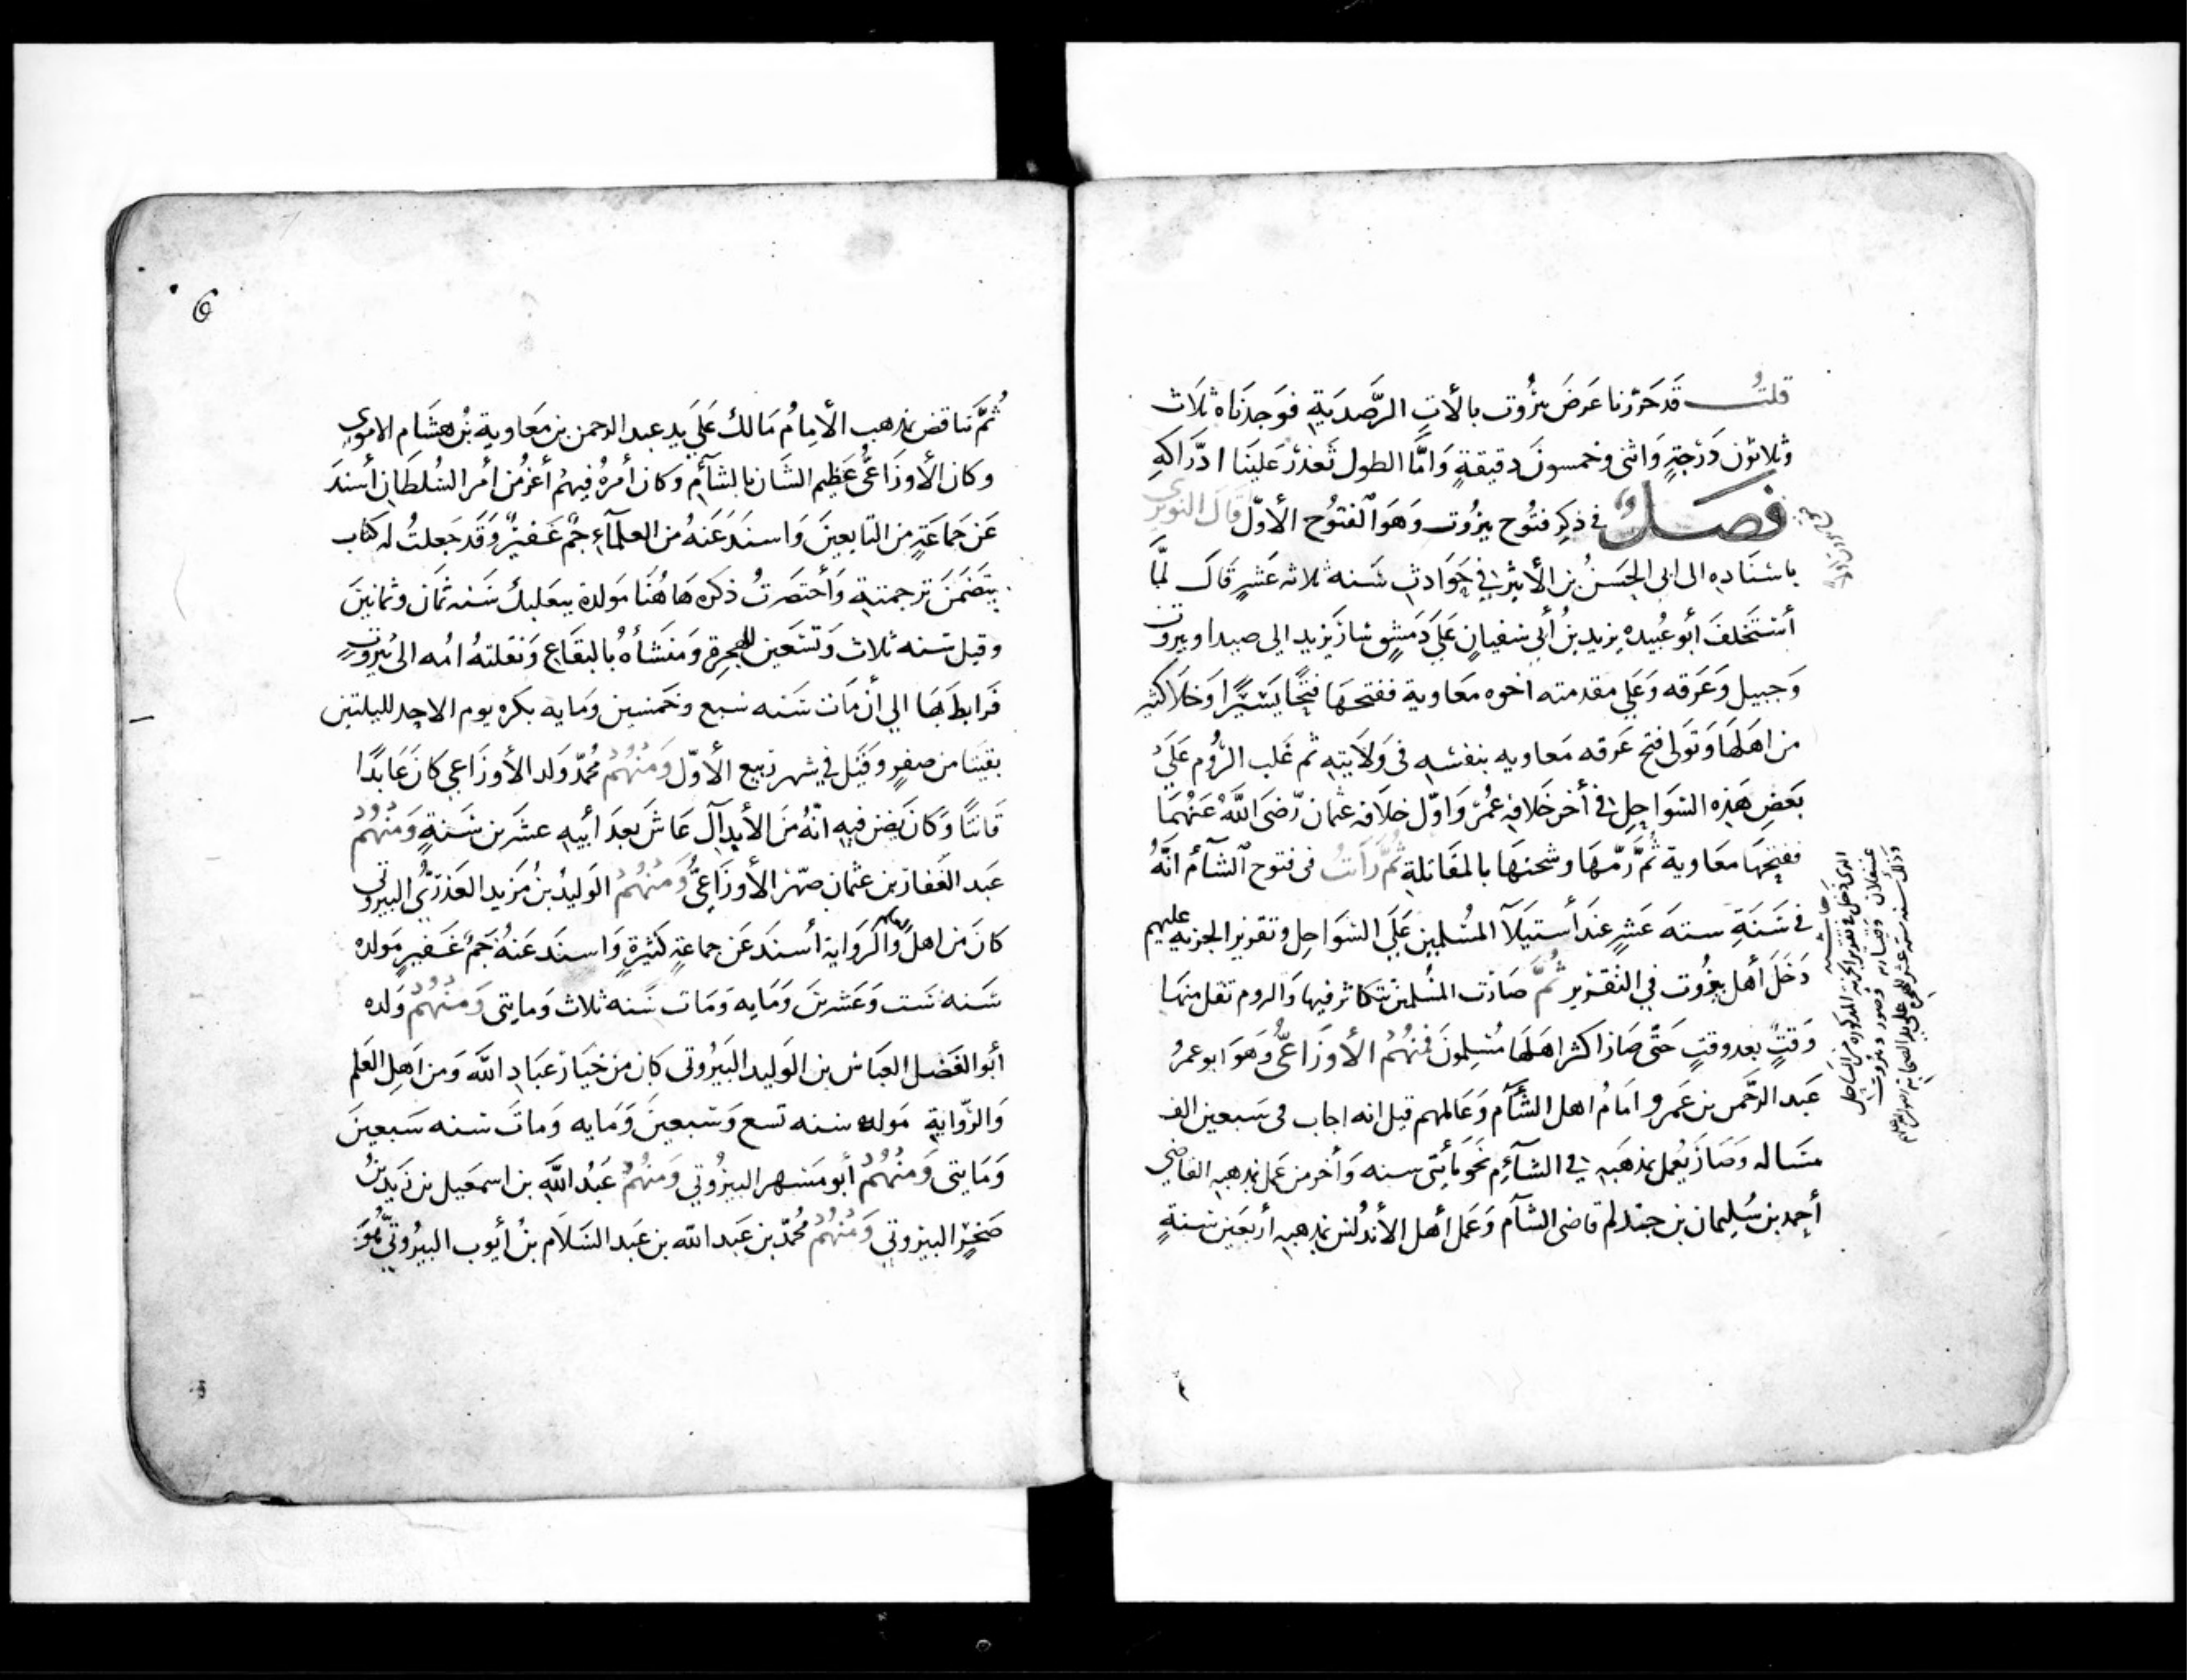 قلتُ قَد حَرّرنا عَرضَ بيرُوت بالألاتِ الرَّصَديَةِ فوَجدنَاه ثلاث
وثلاثون دَرَجةٍ وَاثنى وخمسونَ دقيقةٍ وَامَّا الطول تعذرَ عَلينَا ادّرَاكهِ
فصَلٌ في ذكِر فتُوح بيرُوت وَهوَ الفتُوح الأوّل قال النويرى
باسنَادِهِ الى ابى الحَسَنُ بن الأثير في حَوَادثِ سَنه ثلاثه عَشرٍ قاَل لمَّا
أستَخلفَ أبو عُبيده يزيد بنُ أبي سفيانٍ عَلَى دَمَشقٍ سَارَ يزيد الى صيدا وبيروت
وَجبيل وَعَرَقه وَعَلى مقدمته اخوه مَعَاوية ففتحهَا فتحًا يَسَيرًا وَجَلا كثير
من اهَلهَا وَتَولى فتح عَرقه مَعاويه بنفسِه فى وَلايَتِهِ ثم غَلب الرُوم عَلَى
بَعضِ هَذِه السَوَاحِلِ فى أخر خَلافةِ عُمَر وَاوّل خلافه عثمان رَّضَى اللَّهُ عَنهُمَا
ففتحَهَا مَعَاوية ثُمَّ رَمّهَا وشحنهَا بالمقَاتلةِ ثُمَّ رَاَتُ فى فتوح الشآم انَّهُ
فى سَنَةِ سته عَشرٍ عندَ أستيَلآ المسُلمين عَلَى السَوَاحِلِ وتقرير الجزيه عليهم
دَخَلَ أهل بيرُوت في التقرير ثُمَّ صَارَت المسُلمين تتكاثر فيها وَالروم تقل منهَا
وَقتٍ بعد وقتٍ حَتّى صَار اكثر اهَلهَا مُسَلمونَ فمنهُم الأوزَاعىُّ وهَوَ ابو عمرُ
عَبد الرَّحمن بن عَمرو امَامُ اهل الشَّآم وَعَالمهم قيل انه اجاب فى سَبعين الف
مسَاله وَصَارَ يُعمل بمذهَبهِ في الشآم نَحو مأيتَى سنه وَأخر من عَمل بمذهبهِ القاضى
أحمد بن سُليمان بن جندلم قاضى الشآم وَعَمل أهل الأندلس بمذهبهِ أربَعين سَنةٍ
حاشيه
الذى دَخَل فى تقرير الجزية المذكوره من السَاحل
عسقلان وقيساريه وَصور وبيروت
وَذلك سنه سته عشر للهجره عَلى يد الصحابه رضوان الله عليهم
6
ثُمَّ تناقض بمذهب الأمامُ مَالك عَلَى يَد عبد الرحمن بن مَعَاوية بنُ هشَام الاموى
وكان الأوزَاعىُّ عَظيم الشَان بالشآم وَكان أمرهُ فيهمُ أعز من أمر السُلطَانِ أسندَ
عَن جَماعَةٍ من التابعينَ وَاسندَ عَنهُ من العلمآء جمٌ غَفيرٌ وَقَد جَعلتُ له كتاب
يتضَمَنَ ترجمتهِ وَأختصَرتُ ذكره هَاهُنَا مَولدهُ ببَعلبك سَنه ثمَان وثمانينَ
وقيل سَنه ثلاث وَتسَعين للهجرةِ وَمَنشَأهُ بالبقَاع وَنَقلتهُ امُه الى بَيرُوتٍ
فَرَابط بهَا الى أن مَات سَنه سَبع وخَمسين وَمايه بكره يوم الاحد لليلتين
بقيتا من صفرٍ وَقيل في شهر ربيع الأوّل وَمنهُم محُمّد وَلد الأوزَاعي كان عَابدًا
قَانتًا وَكانَ يَضن فيهِ انّهُ مَن الأبدالَ عَاشَ بعدَ أبيهِ عشرين سَنةٍ وَمنهُم
عَبد الغَفار بن عثمان صهر الأوزَاعىُّ وَمنهُم الوَليدُ بنُ مَزيد العَذرَىُّ البيروتى
كانَ من اهل الرَوَاية أسندَ عَن جماعةٍ كثيرةٍ وَاسندَ عَنهُ جَمُ غَفيرٍ مَولده
سَنه سَت وَعَشرينَ وَمَايه وَمَات سَنه ثلاث وَمايتى وَمنهُم وَلده
أبو الفَضل العبَاس بن الوَليد البَيرُوتى كان مَن خيَار عبَادِ اللَّه وَمن اَهِل العَلم
وَالرّوايةِ مَولده سنه تسع وَستبعينَ وَمَايه وَماتَ سَنه سَبعينَ
وَمَايتى وَمنهُم أبو مَسهر البيرُوتي وَمنهُم عَبدُ اللَّهِ بن اسمعيل بن زَيد بنُ
صَخرٍ البيروتي وَمنهُم محُمّد بن عَبد الله بن عَبد السَلام بنُ أيُوب البيرُوتىّ